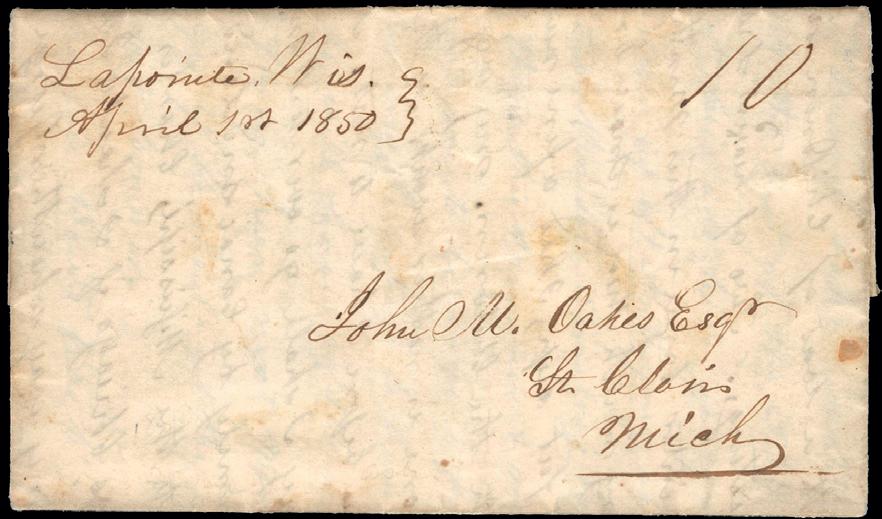 Lapointe, Wis.
April 1st 1850
10
John M. Oakes Esqr
St. Clair
Mich